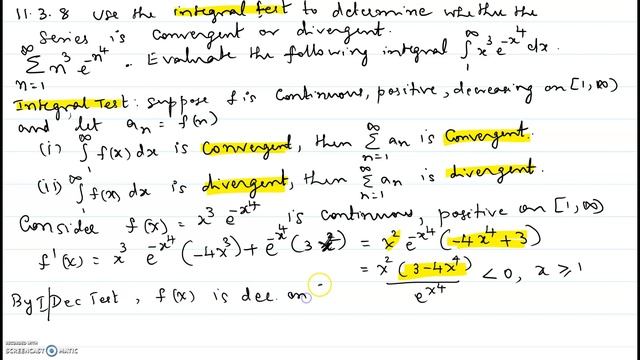 11.3.8 Use the integral test to determine whether the
series is convergent or divergent.
∞ Σ n=1 n³ e^{-n⁴} . Evaluate the following integral ∫₁^∞ x³ e^{-x⁴} dx.
Integral Test: Suppose f is continuous, positive, decreasing on [1, ∞)
and let aₙ = f(n)
(i) ∫₁^∞ f(x) dx is convergent, then Σ_{n=1}^∞ aₙ is convergent.
(ii) ∫₁^∞ f(x) dx is divergent, then Σ_{n=1}^∞ aₙ is divergent.
Consider f(x) = x³ e^{-x⁴} is continuous, positive on [1, ∞)
f'(x) = x³ e^{-x⁴} (-4x³) + e^{-x⁴} (3x²) = x² e^{-x⁴} (-4x⁴ + 3)
= x² (3-4x⁴) / e^{x⁴} < 0, x ≥ 1
By I/Dec Test, f(x) is dec. on
RECORDED WITH
SCREENCAST-O-MATIC